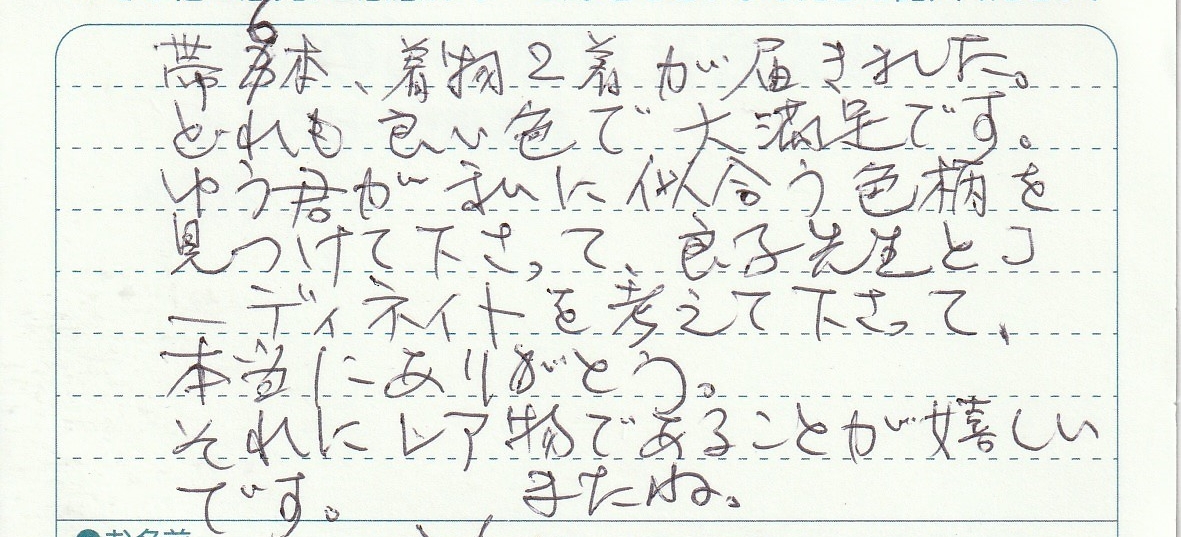 帯6本、着物2着が届きました。
どれも良い色で大満足です。
ゆう君が私に似合う色柄を
見つけて下さって、良子先生とコ
ーディネイトを考えて下さって、
本当にありがとう。
それにレア物であることが嬉しい
です。　またね。
お名前